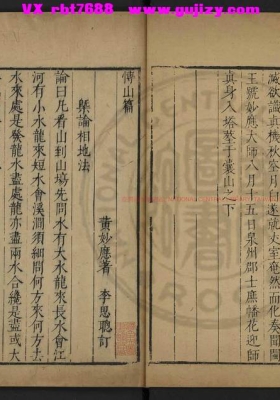 VX rbt7688 www.gujizy.com
滅欲識眞機秋筝月白迷就丈室奄然而化奏聞閩
王號妙應大師八月十五日泉州郡士庶幡花迎師
眞身入塔墊于囊山之下
博山篇
槩論相地法
黄妙應著 李思聰訂
論曰凡看山到山塲先問水有大水龍來長水會江
河有小水龍來短水會溪澗須細問何方來何方去
水來處是發龍水盡處龍亦盡兩水合纔是盡或大